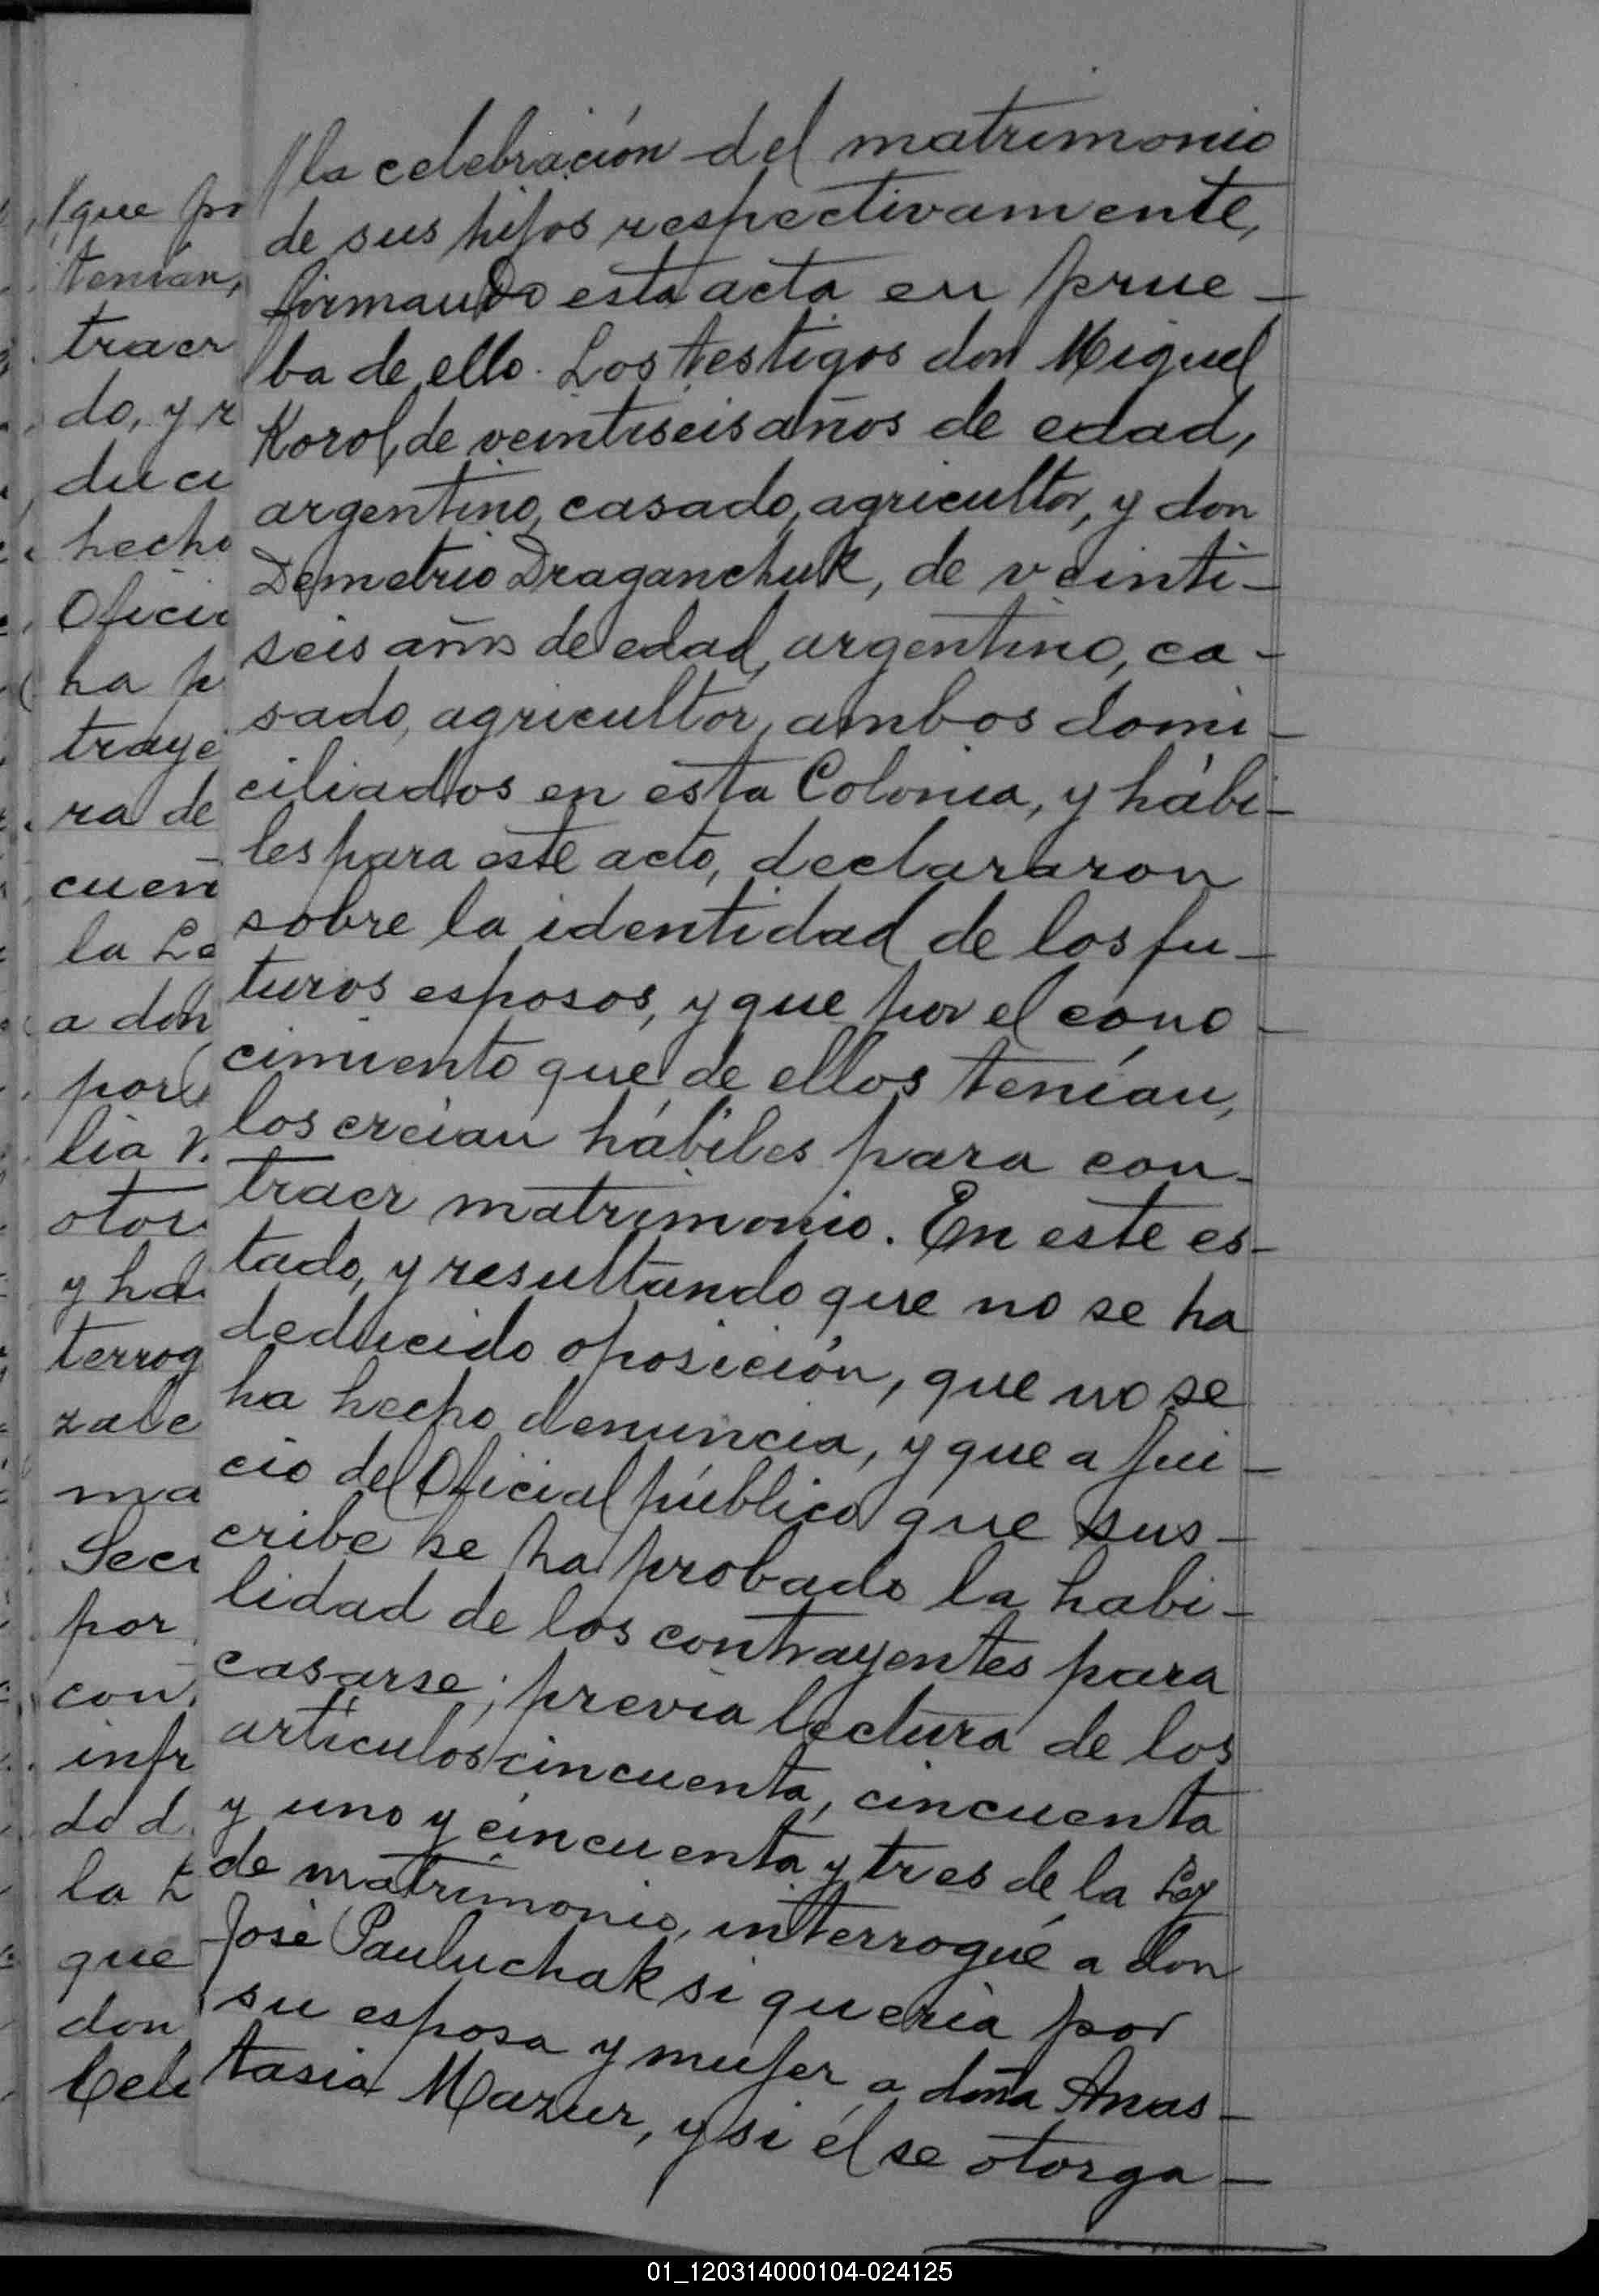 que
tenían,
traer
do, y r
duci
hecho
Ofici
ha p
traye
ra de
cuen
la Le
a don
por
lia
otor
y ha
terrog
zabe
ma
Secr
por
con
infr
do d
la L
que
don
Cele
//la celebración del matrimonio
de sus hijos respectivamente,
firmando esta acta en prue-
ba de ello. Los testigos don Miguel
Korol, de veintiseis años de edad,
argentino, casado, agricultor, y don
Demetrio Draganchuk, de veinti-
seis años de edad, argentino, ca-
sado, agricultor, ambos domi-
ciliados en esta Colonia, y hábi-
les para este acto, declararon
sobre la identidad de los fu-
turos esposos, y que por el cono-
cimiento que de ellos tenían,
los creían hábiles para con-
traer matrimonio. En este es-
tado, y resultando que no se ha
deducido oposición, que no se
ha hecho denuncia, y que a jui-
cio del Oficial público que sus-
cribe se ha probado la habi-
lidad de los contrayentes para
casarse; previa lectura de los
artículos cincuenta, cincuenta
y uno y cincuenta y tres de la Ley
de matrimonio, interrogué a don
José Pauluchak si quería por
su esposa y mujer a doña Anas-
tasia Mazur, y si él se otorga-
01_120314000104-024125